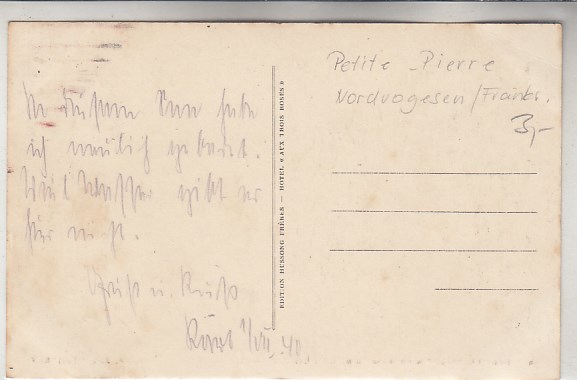 In diesem See habe
ich neulich gebadet.
Viel Wasser gibt es
hier nicht.
Gruß u. Kuß
Kurt
EDITION HUSSONG FRÈRES — HOTEL « AUX TROIS ROSES »
Petite Pierre
Nordvogesen / Frankr.
3,-